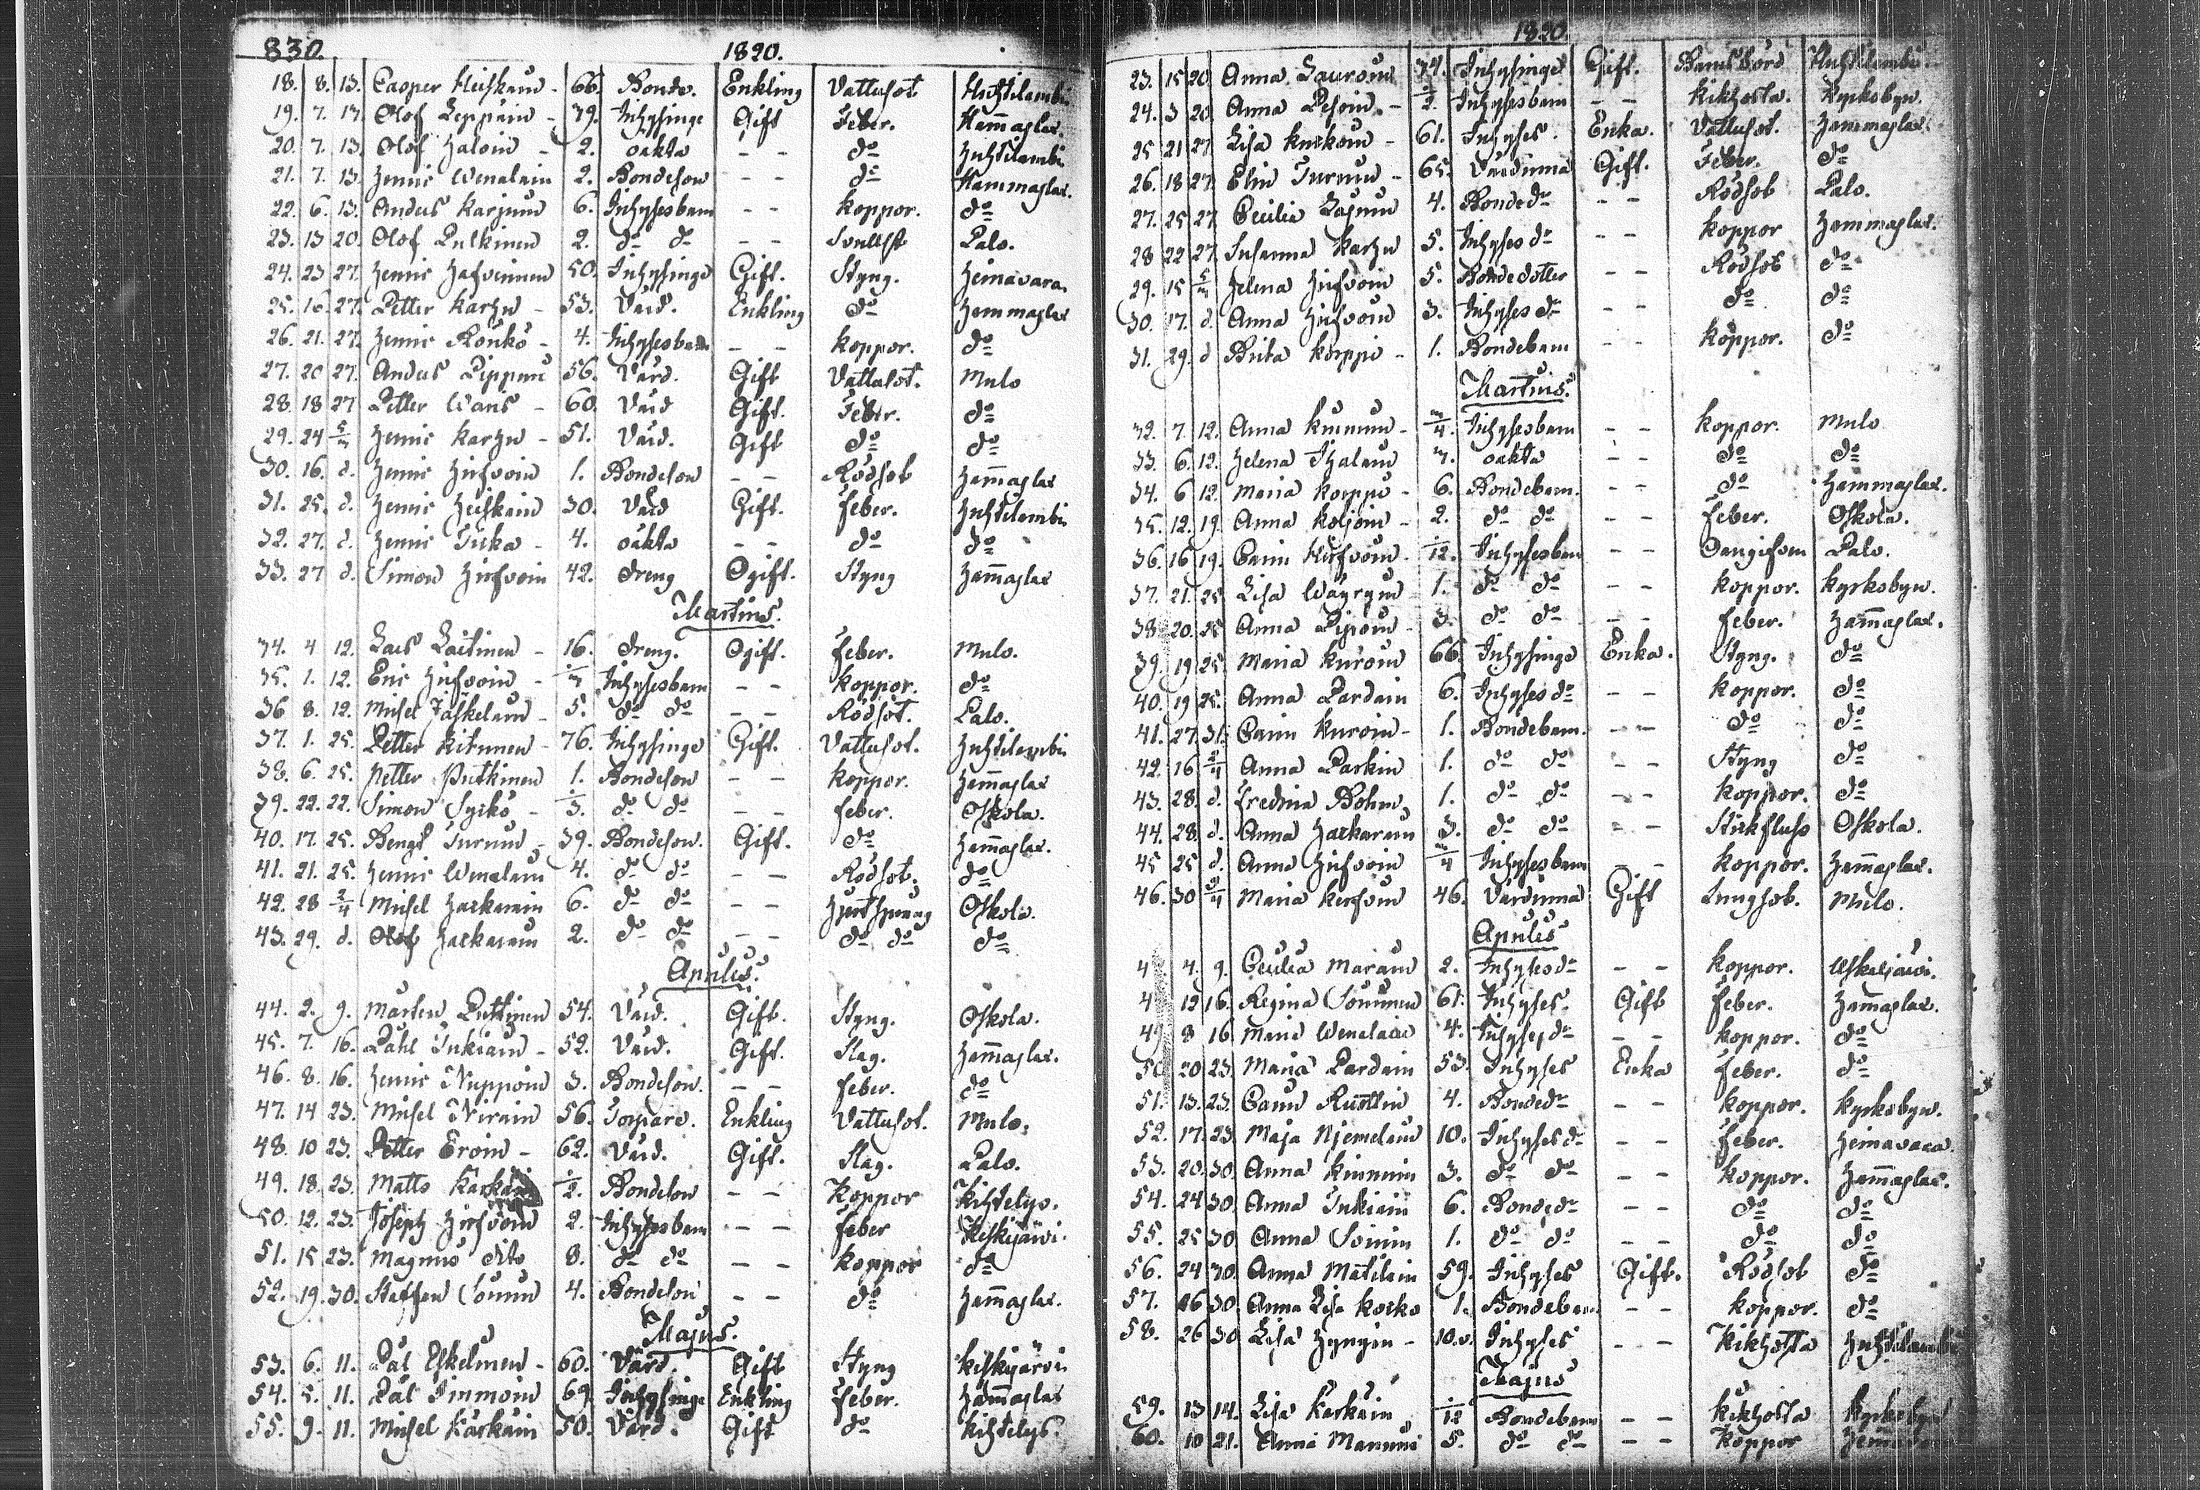 830. 1820.
18. 8. 13. Casper Heiskain - 66. Bonde. Enkling Vattusot Huhtilambi
19. 7. 13. Olof Leppäin - 39. Inhysinge Gift Feber. Ham̅aslax.
20. 7. 13. Olof Haloin - 2. oäkta - - do Huhtilambi
21. 7. 13. Henric Wenelain 2. Bondeson - - do Hammaslax.
22. 6. 13. Anders Karjuin 6. Inhysesbarn - - Koppor. do
23. 13 20. Olof Pulkinen 2. do do - - Palo.
24. 23 27. Henric 50. Inhysinge Gift. Styng. Heinävara.
25. 16. 27. Petter Karhu - 53. Värd. Enkling do Hammaslax
26. 21. 27. Henric Rönkö - 4. Inhysesbarn - - Koppor. do
27. 20 27. Anders Pippuri 56. Värd. Gift Vattusot. Mulo
28. 18 27 Petter Wans - 60. Värd Gift. Feber. do
29. 24 5/m Henric Karhu - 51. Värd. Gift do do
30. 16. d. Henric Hirfvoin 1. Bondeson - - Rödsot Ham̅aslax
31. 25. d. Henric Heiskain 30. Värd Gift. Feber. Huhtilambi
32. 27. d. Henric - 4. oäkta - - do do
33. 27 d. Simon Hirfvoin 42. dreng Ogift. Styng Ham̅aslax
Martius.
34. 4 12. Lars Laitinen - 16. dreng. Ogift. Feber. Mulo.
35. 1. 12. Eric Hirfvoin - Inhysesbarn - - Koppor. do
36 8. 12. Michel Jäskeläin - 5. do do - - Rödsot. Palo.
37. 1. 25. Petter Kitunen - 76. Inhysinge Gift. Vattusot. Huhtilambi
38. 6. 25. Petter Putkinen 1. Bondeson - - Koppor. Ham̅aslax
39. 22. 22. Simon Syrkö - do do - - Feber. Oskola.
40. 17. 25. Bengt Turuin - 39. Bondeson. Gift. do Ham̅aslax.
41. 21. 25. Henric Wenelain 4. do do - - Rödsot. do
42. 28 2/4 Michel Harkarain 6. do do - - Oskola.
43. 29. d. Olof Harkarain 2. do do - - do do do
Aprilis.
44. 2. 9. Mårten Puttinen 54. Värd. Gift. Styng. Oskola.
45. 7. 16. Påhl Inkiäin - 52. Värd. Gift. Slag. Ham̅aslax.
46. 8. 16. Henric Nuppoin 3. Bondeson. - - Feber. do
47. 14 23. Michel Nirain 56. Torpare. Enkling Vattusot. Mulo.
48. 10 23. Petter Eroin - 62. Värd. Gift. Slag. Palo.
49. 18. 23. Matts Bondeson - - Koppor Kihtelys.
50. 12. 23. Joseph Hirfvoin 2. Inhysesbarn - - Feber Keskijärvi.
51. 15 23. Magnus dito 8. do do - - Koppor do
52. 19. 30. Staffen Soinin 4. Bondeson - - do Ham̅aslax.
Majus.
53. 6. 11. Pål Eskelinen - 60. Värd. Gift Styng Keskijärvi
54. 5. 11. Pål Simmoin 69. Inhysinge Enkling Feber. Ham̅aslax
55. 9. 11. Michel Kärkäin 50. Värd. Gift do Kihtelys.
1820.
23. 15 20. Anna Lauroin 34. Inhysinge Gift. Barnsbörd Huhtilambi.
24. 3 20. Anna Pesoin - Inhysesbarn - - Kikhosta. Kyrkobyn.
25 21 27. Lisa Kurkoin - 61. Inhyses. Enka. Vattusot. Hammaslax.
26. 18 27. Elin Turuin - 65. Värdinna Gift. Feber. do
27. 25 27. Cecilia Lajuin 4. Bonde do - - Rödsot Palo.
28 22 27. Susanna Karhu 5. Inhyses do - - Koppor Hammaslax.
29. 15 5/m Helena Hirfvoin 5. Bondedotter - - Rödsot do
30. 17. d. Anna Hirfvoin 3. Inhyses do - - do do
31. 29. d Brita Korppi - 1. Bondebarn - - Koppor. do
Martius.
32. 7. 12. Anna Kinnuin - m/4. Inhysesbarn - - Koppor. Mulo
33. 6. 12. Helena Ihalain oäkta - - do do
34. 6 12. Maria Korppi - 6. Bondebarn. - - do Hammaslax.
35. 12. 19. Anna Koljoin - 2. do do - - Feber. Oskola.
36. 16 19. Carin Hirfvoin - 12. Inhysesbarn - - Oangifven Palo.
37. 21. 25. Lisa Wäyryin - 1. do do - - Koppor. Kyrkobyn.
38. 20. 25 Anna Piipoin - 3. do do - - Feber. Ham̅aslax.
39. 19 25. Maria Kuroin 66. Inhysinge Enka. Styng. do
40. 19 25. Anna Pardain 6. Inhyses do - - Koppor. do
41. 27. 31. Carin Kuroin - 1. Bondebarn. - - do do
42. 16 2/4 Anna Parkin 1. do do - - Styng do
43. 28. d. Fredrica Bohm 1. do do - - Koppor. do
44. 28. d. Anna Harkarain 3. do do - - Stickfluss Oskola.
45 25 d. Anna Hirfvoin m/4 Inhysesbarn - - Koppor. Ham̅aslax.
46. 30 Maria Kerfvin 46. Värdinna Gift Lungsot. Mulo.
Aprilis
4 4. 9. Cecilia Marain 2. Inhyses do - - Koppor.
4 12 16. Regina Soininen 61. Inhyses. Gift Feber. Ham̅aslax.
49. 8 16. Maria Wenelain 4. Inhyses do - - Koppor. do
50 20 23. Maria Pardain 53. Inhyses Enka Feber. do
51. 13. 23. Carin Ruottin 4. Bonde do - - Koppor. Kyrkobyn.
52. 17. 23. Maja Njemeläin 10. Inhyses do - - Feber. Heinävara.
53. 20. 30. Anna Kinnuin 3. do do - - Koppor. Ham̅aslax.
54. 24 30. Anna Inkiäin 6. Bonde do - - do do
55. 25 30 Anna Soinin 1. do do - - do do
56. 24 30. Anna Matilain 59. Inhyses Gift. Rödsot do
57. 26 30. Anna Lisa Korko 1. Bondebarn - - Koppor. do
58. 26 30 Lisa Hyngin - 10. v. Inhyses - - Kikhosta Huhtilambi
Majus
59. 13 14. Lisa Karkain 12 Bondebarn - - Kikhosta Kyrkobyn
60. 10 21. Anna Manuin 5. do do - - Koppor